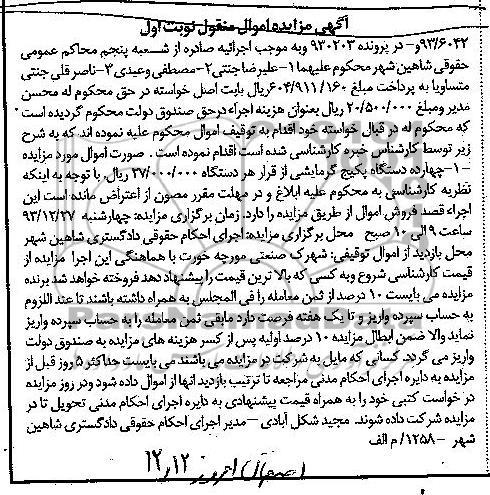 آگهی مزایده اموال منقول نوبت اول
۹۳/۶۰۴۲و- در پرونده ۹۳۰۲۰۳ وبه موجب اجرائیه صادره از شعبه پنجم محاکم عمومی
حقوقی شاهین شهر محکوم علیهما ۱-علیرضا جنتی۲-مصطفی وعیدی۳-ناصر قلی جنتی
متساویا به پرداخت مبلغ ۶۰۴/۹۱۱/۱۶۰ریال بابت اصل خواسته در حق محکوم له محسن
غدیر ومبلغ ۲۰/۵۰۰/۰۰۰ ریال بعنوان هزینه اجراء درحق صندوق دولت محکوم گردیده است
که محکوم له در قبال خواسته خود اقدام به توقیف اموال محکوم علیه نموده اند که به شرح
زیر توسط کارشناس خبره کارشناسی شده است اقدام نموده است . صورت اموال مورد مزایده
-۱-چهارده دستگاه پکیج گرمایشی از قرار هر دستگاه ۲۷/۰۰۰/۰۰۰ ریال. با توجه به اینکه
نظریه کارشناسی به محکوم علیه ابلاغ و در مهلت مقرر مصون از اعتراض مانده است این
اجراء قصد فروش اموال از طریق مزایده را دارد. زمان برگزاری مزایده: چهارشنبه ۹۳/۱۲/۲۷
ساعت ۹ الی ۱۰ صبح محل برگزاری مزایده: اجرای احکام حقوقی دادگستری شاهین شهر
محل بازدید از اموال توقیفی: شهرک صنعتی مورچه خورت با هماهنگی این اجرا مزایده از
قیمت کارشناسی شروع وبه کسی که بالا ترین قیمت را پیشنهاد دهد فروخته خواهد شد برنده
مزایده می بایست ۱۰ درصد از ثمن معامله را فی المجلس به همراه داشته باشند تا عند اللزوم
به حساب سپرده واریز و تا یک هفته فرصت دارد مابقی ثمن معامله را به حساب سپرده واریز
نماید والا ضمن ابطال مزایده ۱۰ درصد اولیه پس از کسر هزینه های مزایده به صندوق دولت
واریز می گردد. کسانی که مایل به شرکت در مزایده می باشند می بایست حداکثر ۵ روز قبل از
مزایده به دایره اجرای احکام مدنی مراجعه تا ترتیب بازدید آنها از اموال داده شود ودر روز مزایده
در خواست کتبی خود را به همراه قیمت پیشنهادی به دایره اجرای احکام مدنی تحویل تا در
مزایده شرکت داده شوند. مجید شکل آبادی –مدیر اجرای احکام حقوقی دادگستری شاهین
شهر -۱۲۵۸/ م الف
اصفهان امروز ۱۲ر۱۲